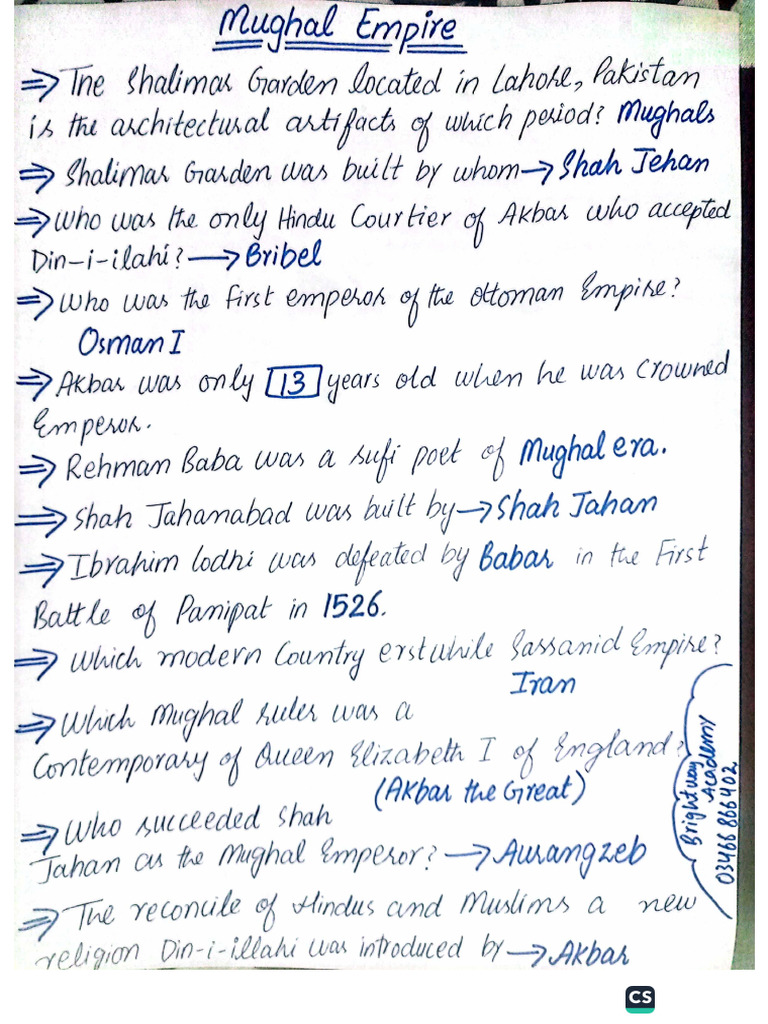 Mughal Empire
⇒ The Shalimar Garden located in Lahore, Pakistan
is the architectural artifacts of which period? Mughals
⇒ Shalimar Garden was built by whom → Shah Jehan
⇒ Who was the only Hindu Courtier of Akbar who accepted
Din-i-ilahi? → Bribel
⇒ Who was the first emperor of the Ottoman Empire?
Osman I
⇒ Akbar was only 13 years old when he was crowned
Emperor.
⇒ Rehman Baba was a sufi poet of Mughal era.
⇒ Shah Jahanabad was built by → Shah Jahan
⇒ Ibrahim lodhi was defeated by Babar in the First
Battle of Panipat in 1526.
⇒ Which modern Country erstwhile Sassanid Empire?
Iran
⇒ Which Mughal ruler was a
Contemporary of Queen Elizabeth I of England?
(Akbar the Great)
⇒ Who succeeded Shah
Jahan as the Mughal Emperor? → Aurangzeb
⇒ The reconcile of Hindus and Muslims a new
religion Din-i-illahi was introduced by → Akbar
Brightway
Academy
03466866402
CS